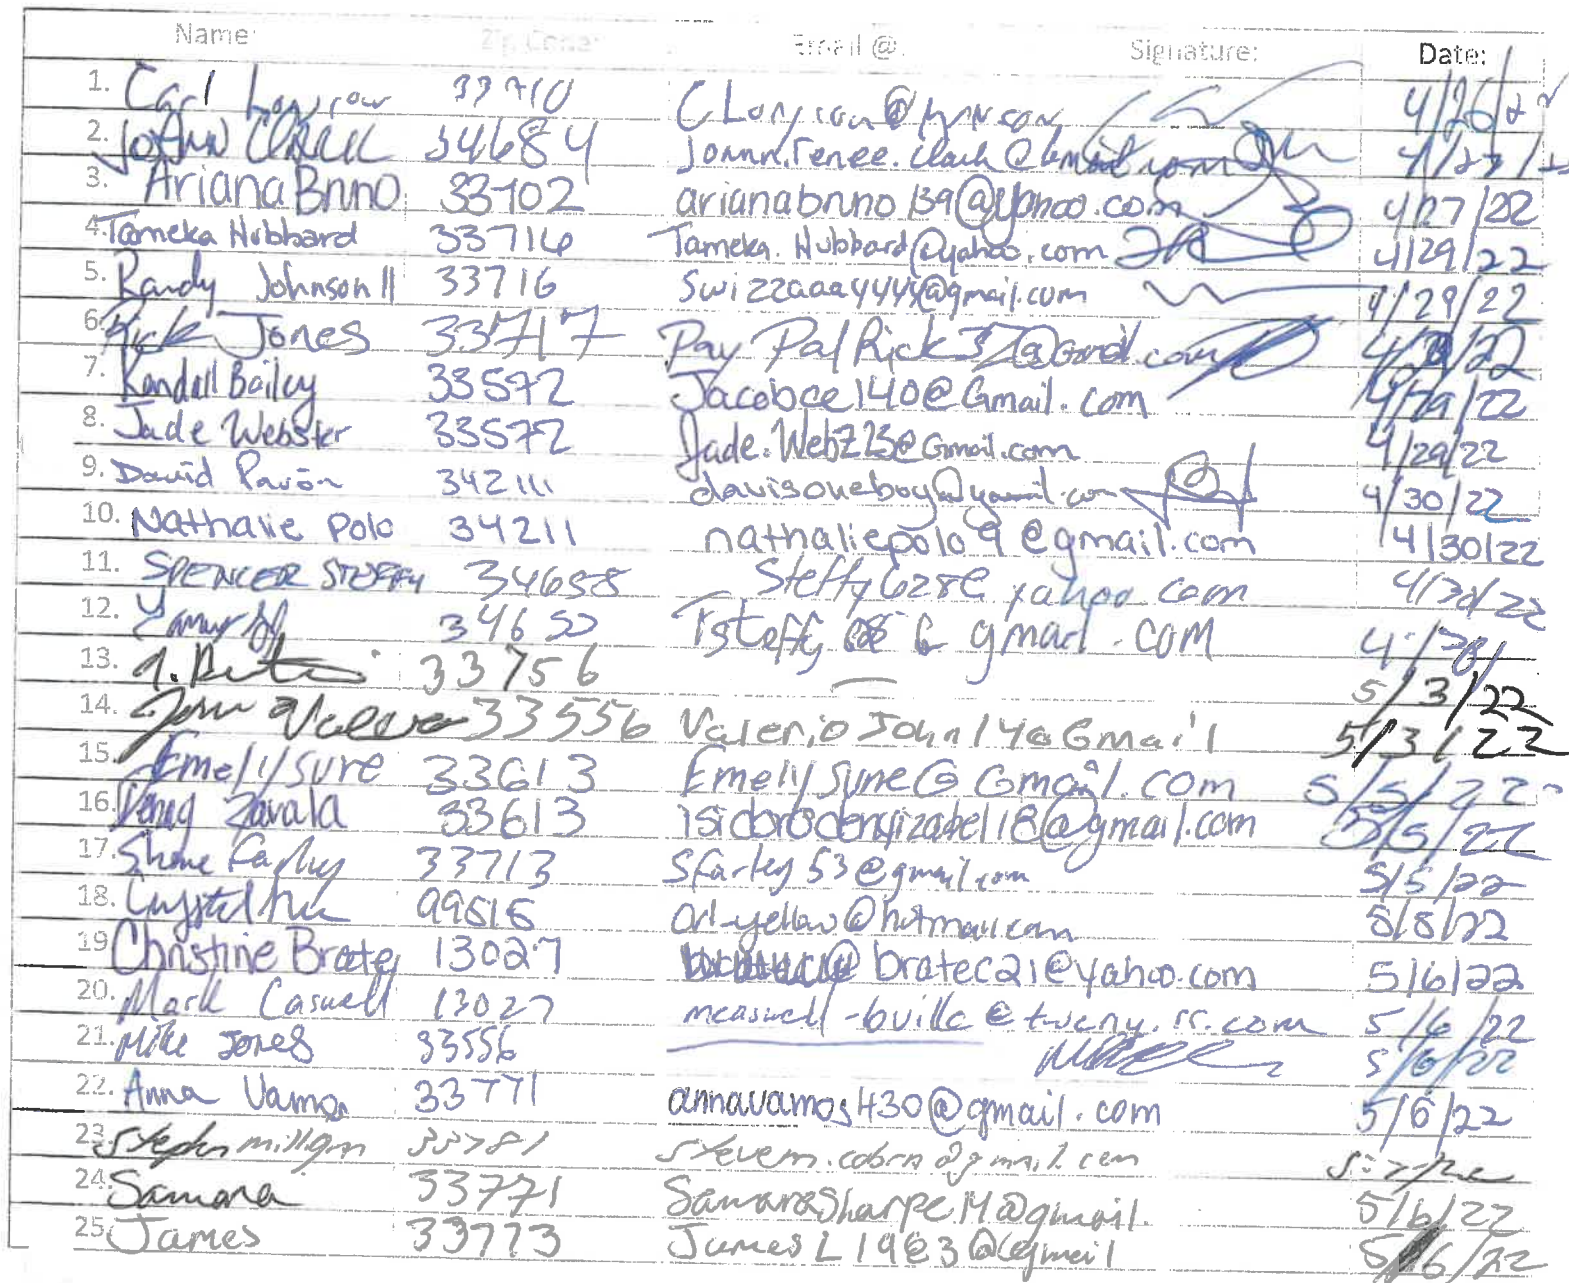 Name: Zip Code: Email @ Signature: Date:
1. Carl 33710 4/26/22
2. JoAnn Clark 34684 Joann.renee.clark@gmail.com 4/27/22
3. Ariana Bruno 33702 arianabruno139@yahoo.com 4/27/22
4. Tameka Hubbard 33716 Tameka.Hubbard@yahoo.com 4/29/22
5. Randy Johnson II 33716 Swizzaaa4444@gmail.com 4/29/22
6. Rick Jones 33717 PayPalRick37@Gmail.com 4/29/22
7. Kendall Bailey 33572 Jacobce140@Gmail.com 4/29/22
8. Jade Webster 33572 Jade.Webz23@Gmail.com 4/29/22
9. David Pavón 34211 4/30/22
10. Nathalie Polo 34211 nathaliepolo9@gmail.com 4/30/22
11. SPENCER STEFFY 34688 Steffy628@yahoo.com 4/30/22
12. 34652 gmail.com 4/30/
13. 33756 — 5/3/22
14. John 33556 ValerioJohn14@Gmail 5/3/22
15. Emely Sure 33613 EmelySyne@Gmail.com 5/5/22
16. Deney Zavala 33613 isidorodenyizabel18@gmail.com 5/5/22
17. Shane Farley 33713 Sfarley53@gmail.com 5/5/22
18. Crystal 99516 @hotmail.com 5/8/22
19. Christine Brate 13027 bratec21@yahoo.com 5/6/22
20. Mark Caswell 13027 mcaswell-bville@twcny.rr.com 5/6/22
21. Mike Jones 33556 5/6/22
22. Anna Vamos 33771 annavamos430@gmail.com 5/6/22
23. Stephen milligan 33781 stevem.cobra@gmail.com
24. Samara 33771 SamaraSharpe14@gmail. 5/6/22
25. James 33773 JamesL1963@gmail 5/6/22